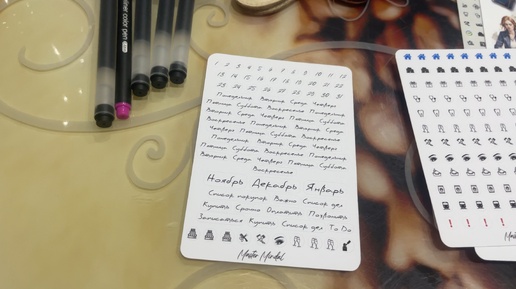 liner color pen
1 2 3 4 5 6 7 8 9 10 11 12
13 14 15 16 17 18 19 20 21 22 23 24
25 26 27 28 29 30 31
Понедельник Вторник Среда Четверг
Пятница Суббота Воскресение Понедельник
Вторник Среда Четверг Пятница Суббота
Воскресение Понедельник Вторник Среда
Четверг Пятница Суббота Воскресение
Понедельник Вторник Среда Четверг
Пятница Суббота Воскресение Понедельник
Вторник Среда Четверг Пятница Суббота
Воскресение
Ноябрь Декабрь Январь
Список покупок Важно Список дел
Купить Срочно Оплатить Позвонить
Записаться Купить Список дел To Do
Master